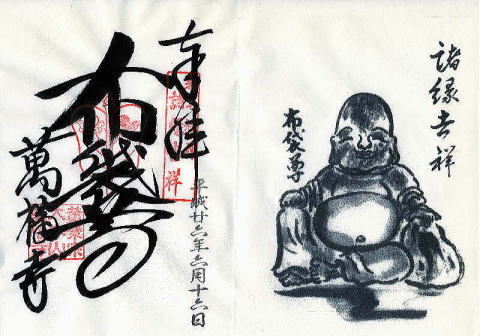 諸縁吉祥
布袋尊
奉拝
平成廿六年六月十六日
布袋尊
萬福寺